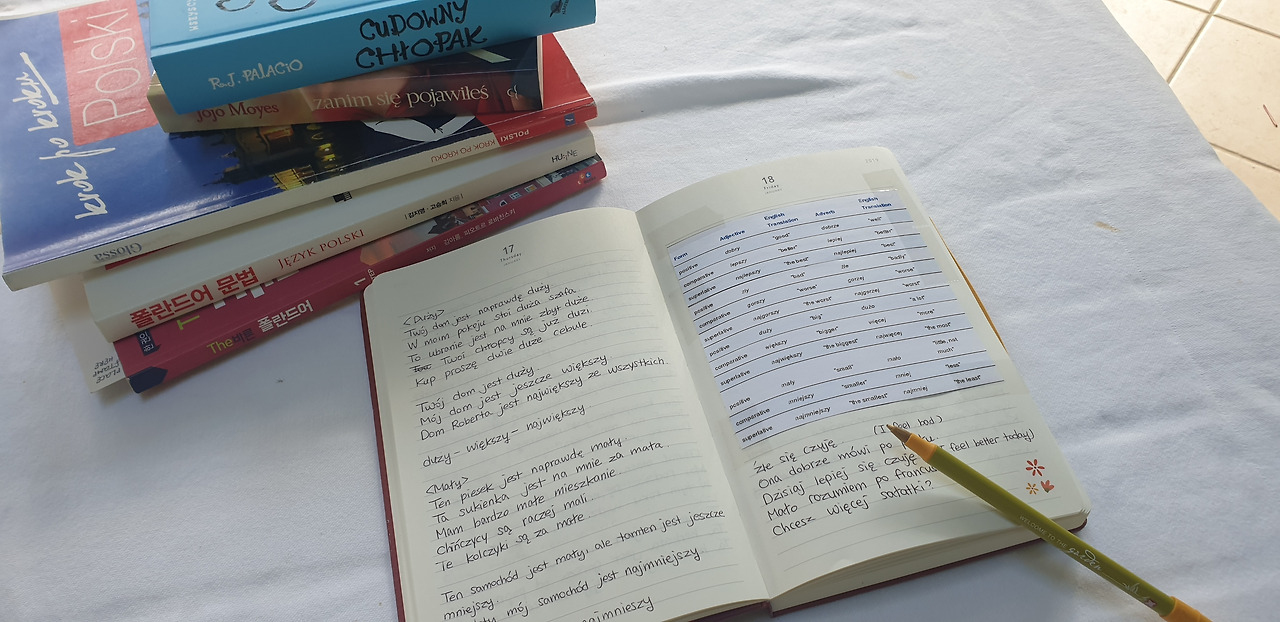 CUDOWNY
CHŁOPAK
R.J. PALACIO
Jojo Moyes zanim się pojawiłeś
Polski
krok po kroku
POLSKI KROK PO KROKU
Glossa
HUiNE
폴란드어 문법 JĘZYK POLSKI
The 바른 폴란드어
PLACE
STAMP
HERE
17
Thursday
<Duży>
Twój dom jest naprawdę duży
W moim pokoju stoi duża szafa
To ubranie jest na mnie zbyt duże
Twoi chłopcy są już duzi.
Kup proszę dwie duże cebule.
Twój dom jest duży
Mój dom jest jeszcze większy
Dom Roberta jest największy ze wszystkich
duży - większy - największy
<Mały>
Ten piesek jest naprawdę mały
Ta sukienka jest na mnie za mała
Mam bardzo małe mieszkanie.
Chińczycy są raczej mali.
Te kolczyki są za małe.
Ten samochód jest mały, ale tamten jest jeszcze
mniejszy.
mój samochód jest najmniejszy
najmnieszy
2019
18
Friday
Form Adjective English Translation Adverb English Translation
positive dobry "good" dobrze "well"
comparative lepszy "better" lepiej "better"
superlative najlepszy "the best" najlepiej "best"
positive zły "bad" źle "badly"
comparative gorszy "worse" gorzej "worse"
superlative najgorszy "the worst" najgorzej "worst"
positive duży "big" dużo "a lot"
comparative większy "bigger" więcej "more"
superlative największy "the biggest" najwięcej "the most"
positive mały "small" mało "little, not much"
comparative mniejszy "smaller" mniej "less"
superlative najmniejszy "the smallest" najmniej "the least"
Źle się czuję (I feel bad)
Ona dobrze mówi po
Dzisiaj lepiej się czuję feel better today)
Mało rozumiem po francus
Chcesz więcej sałatki?
WELCOME TO THE garden